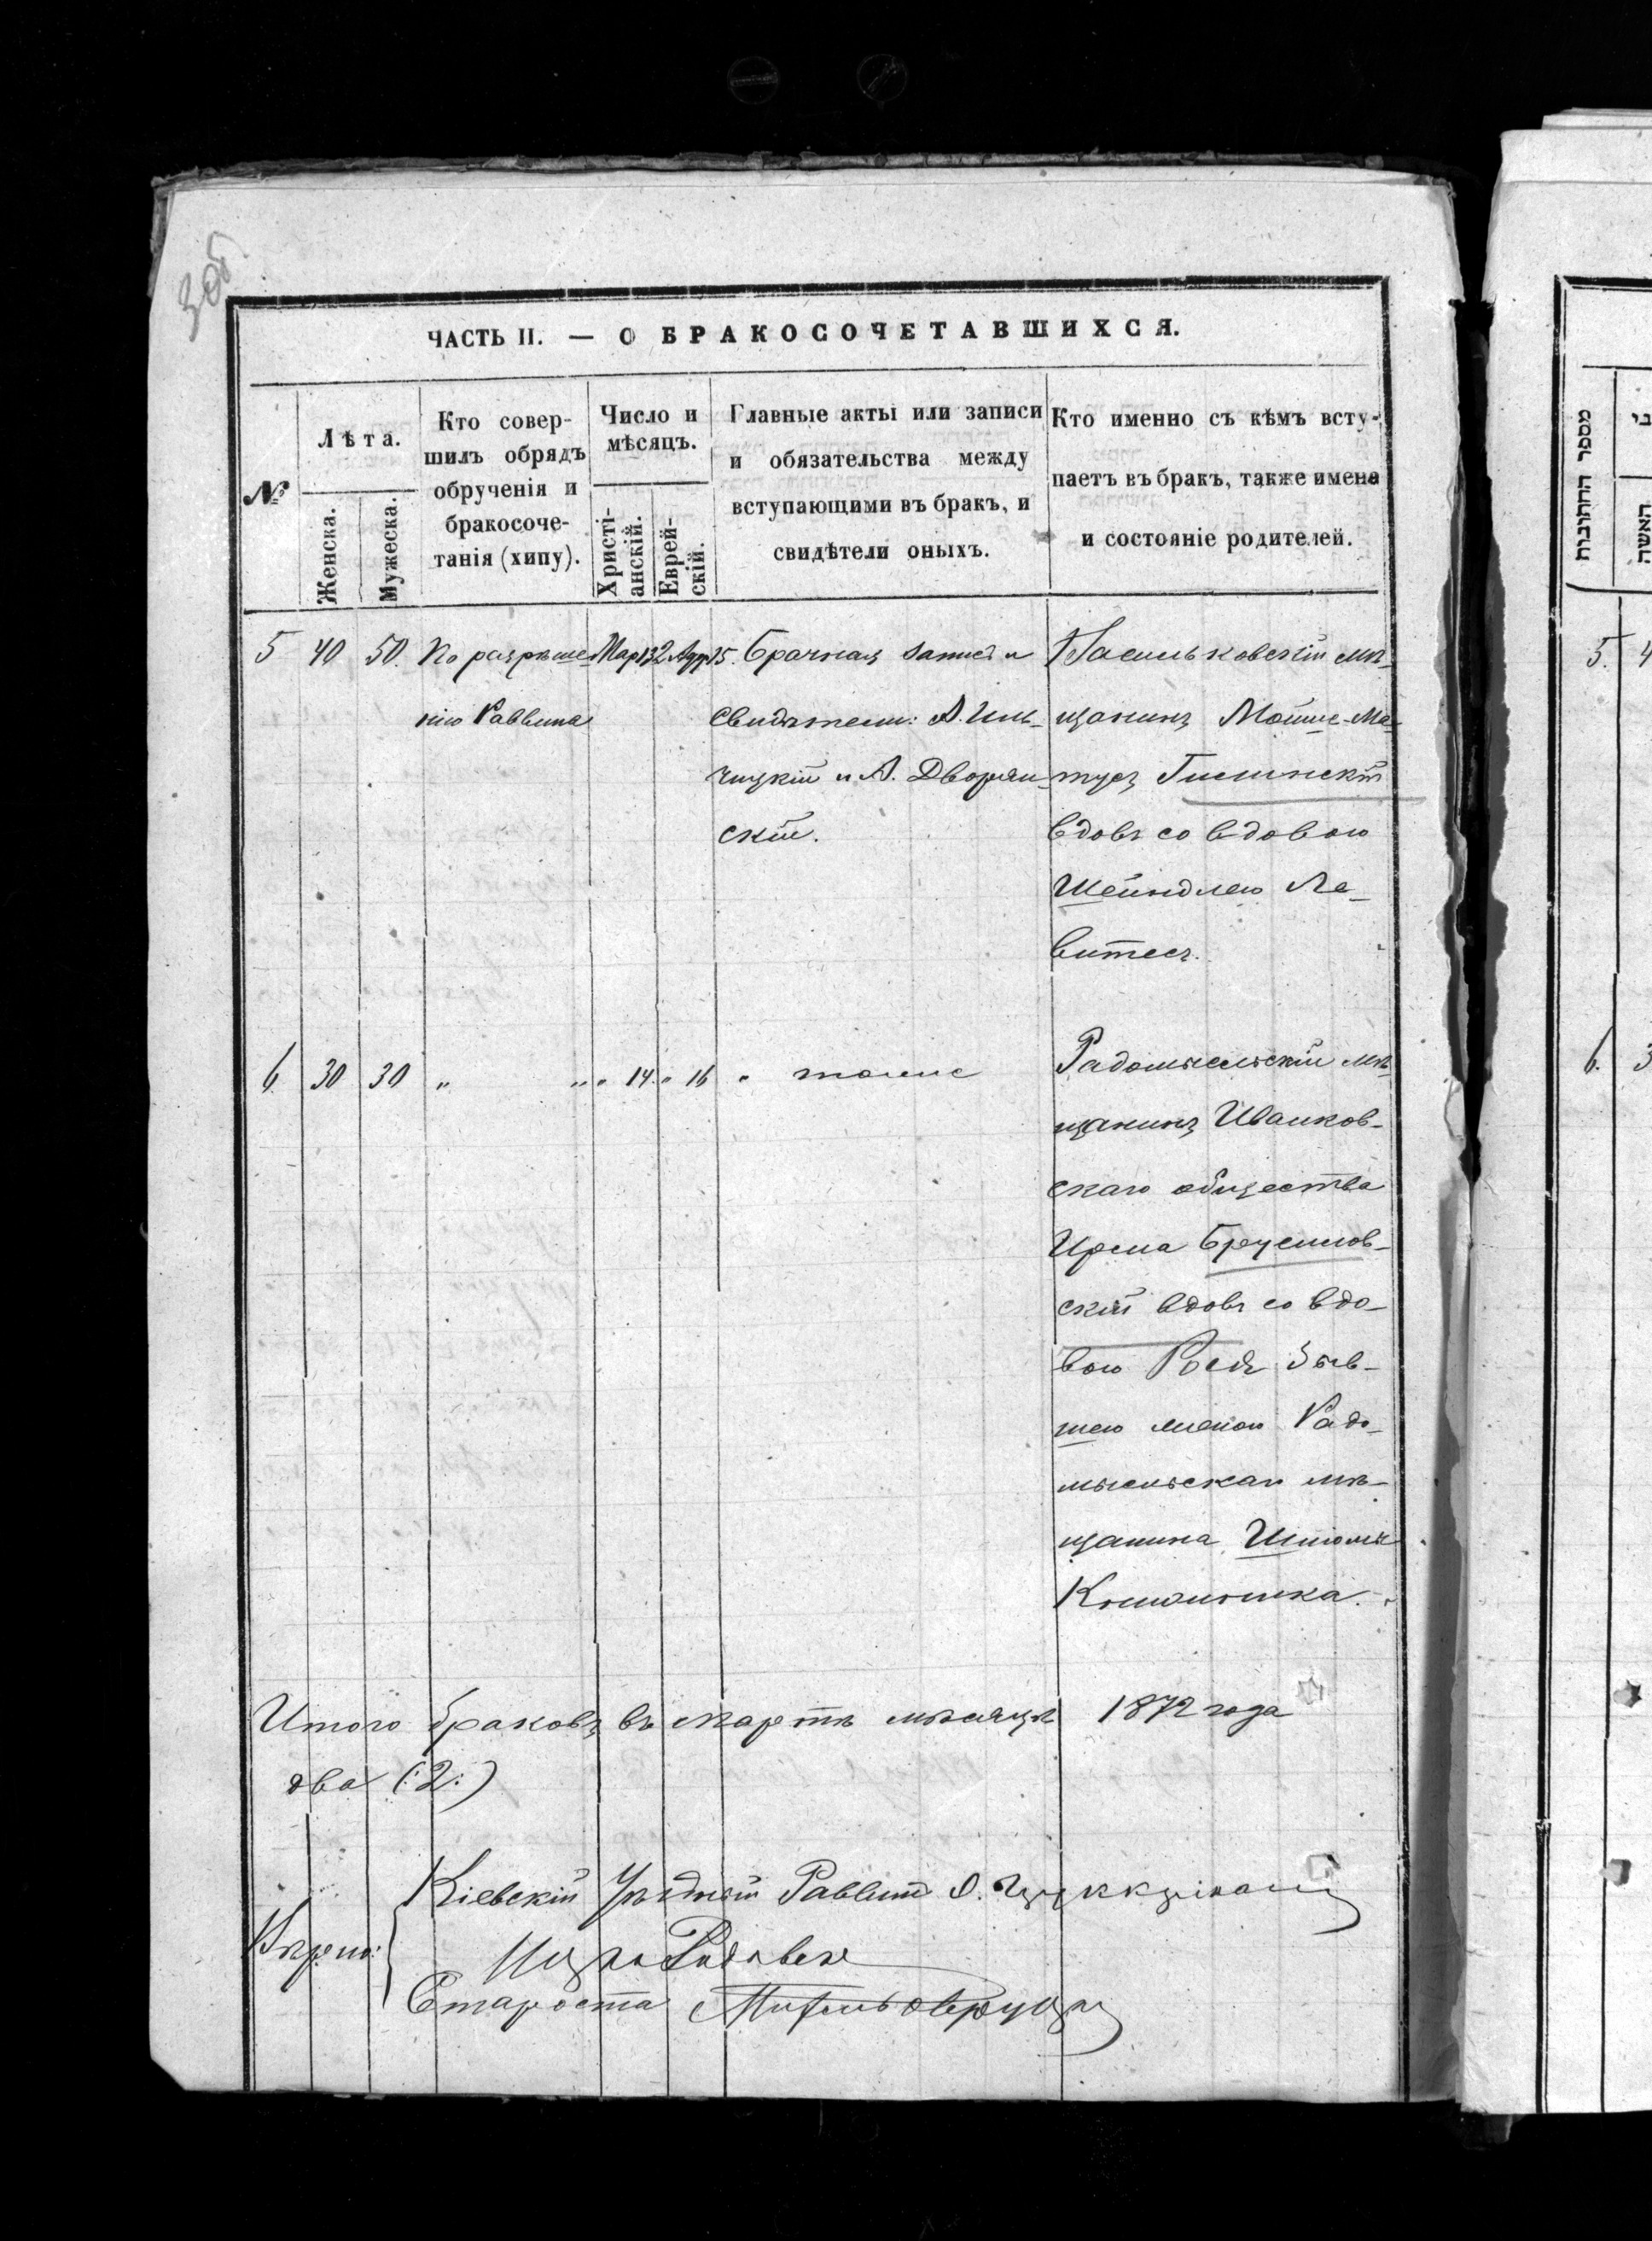 3об.
ЧАСТЬ II. — О БРАКОСОЧЕТАВШИХСЯ.
№
Лѣта.
Женска.
Мужеска.
Кто совер-
шилъ обрядъ
обрученія и
бракосоче-
танія (хипу).
Число и
мѣсяцъ.
Христі-
анскій.
Еврей-
скій.
Главные акты или записи
и обязательства между
вступающими въ бракъ, и
свидѣтели оныхъ.
Кто именно съ кѣмъ всту-
паетъ въ бракъ, также имена
и состояніе родителей.
5 40 50. По разрѣше-
нію Раввина
Брачная запись и
свидѣтели: А. Иль-
ницкій и А. Дворян-
скій.
Васильковскій мѣ-
щанинъ Мойше-Ма-
тусъ
вдовъ со вдовою
Шейндлею Ле-
витесъ.
6. 30 30 " " " 14. " 16 " тоже
Радомысльскій мѣ-
щанинъ Иванков-
скаго общества
Ирма Брусилов-
скій вдовъ со вдо-
вою быв-
шею женою Радо-
мысльскаго мѣ-
щанина Шлиомы
Итого браковъ въ мартѣ мѣсяцѣ 1872 года
два (:2:)
Вѣрно:
Кіевскій Уѣздный Раввинъ
Староста
מספר החתונות
האשה
5. 4
6. 3